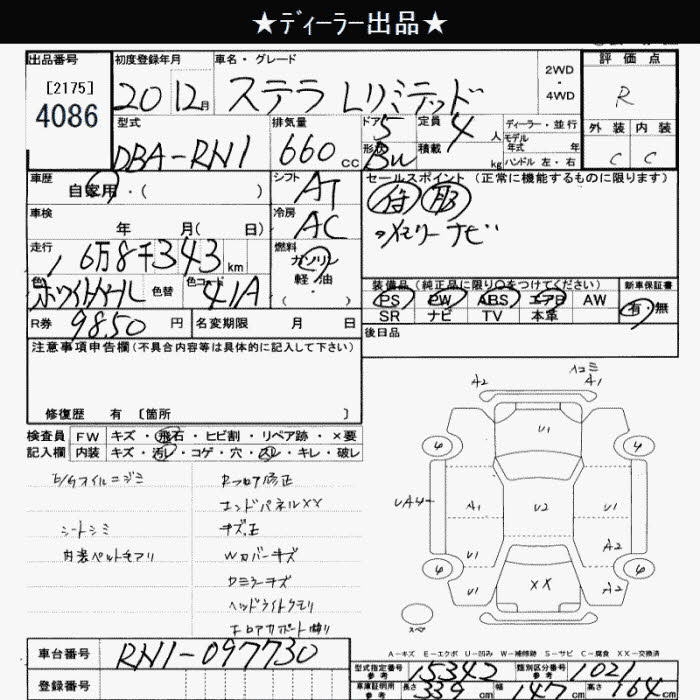 ★ディーラー出品★
出品番号
[2175]
4086
初度登録年月
20 12月
車名・グレード
ステラ Lリミテッド
2WD
・
4WD
評価点
R
外装 内装
C C
型式
DBA-RN1
排気量
660 cc
ドア 5
形状 BW
定員 4 人
積載 kg
ディーラー・並行
モデル年式 年
ハンドル 左・右
車歴
自家用・( )
シフト AT
セールスポイント (正常に機能するものに限ります)
メモリーナビ
車検
年 月( 日)
冷房 AC
走行
6万8千343 km
燃料
ガソリン
軽・油
( ・ )
色 ホワイトパール
色替
色コード 41A
装備品 (純正品に限り○をつけてください)
PS PW ABS エアB AW
SR ナビ TV 本革
新車保証書
有・無
R券 9850 円
名変期限 月 日
後日品
注意事項申告欄 (不具合内容等は具体的に記入して下さい)
修復歴 有 〔箇所 〕
検査員記入欄
FW キズ・飛石・ヒビ割・リペア跡・×要
内装 キズ・汚レ・コゲ・穴・スレ・キレ・破レ
E/Gオイルニジミ
シートシミ
Rフロア修正
エンドパネルXX
キズ,エ
Wカバーキズ
Dミラーキズ
ヘッドライトクモリ
A2
A1
U1
4
4
UA4
A1
U2
U1
U1
A2
4
4
U1
XX
A2
スペア
A-キズ E-エクボ U-凹み W-補修跡 S-サビ C-腐食 XX-交換済
車台番号 RN1-097730
登録番号
型式指定番号 参考 15342
類別区分番号 参考 1021
車庫証明用 参考 長さ 339 cm 幅 147 cm 高さ 164 cm